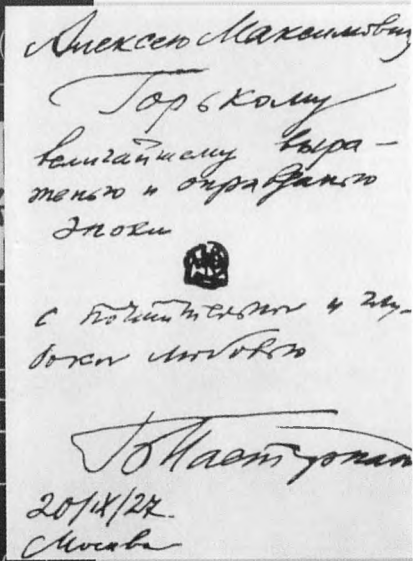 Алексею Максимовичу
Горькому
величайшему выра-
женью и оправданью
эпохи
с почтительной и глу-
бокой любовью
Б Пастернак
20/IX/27.
Москва